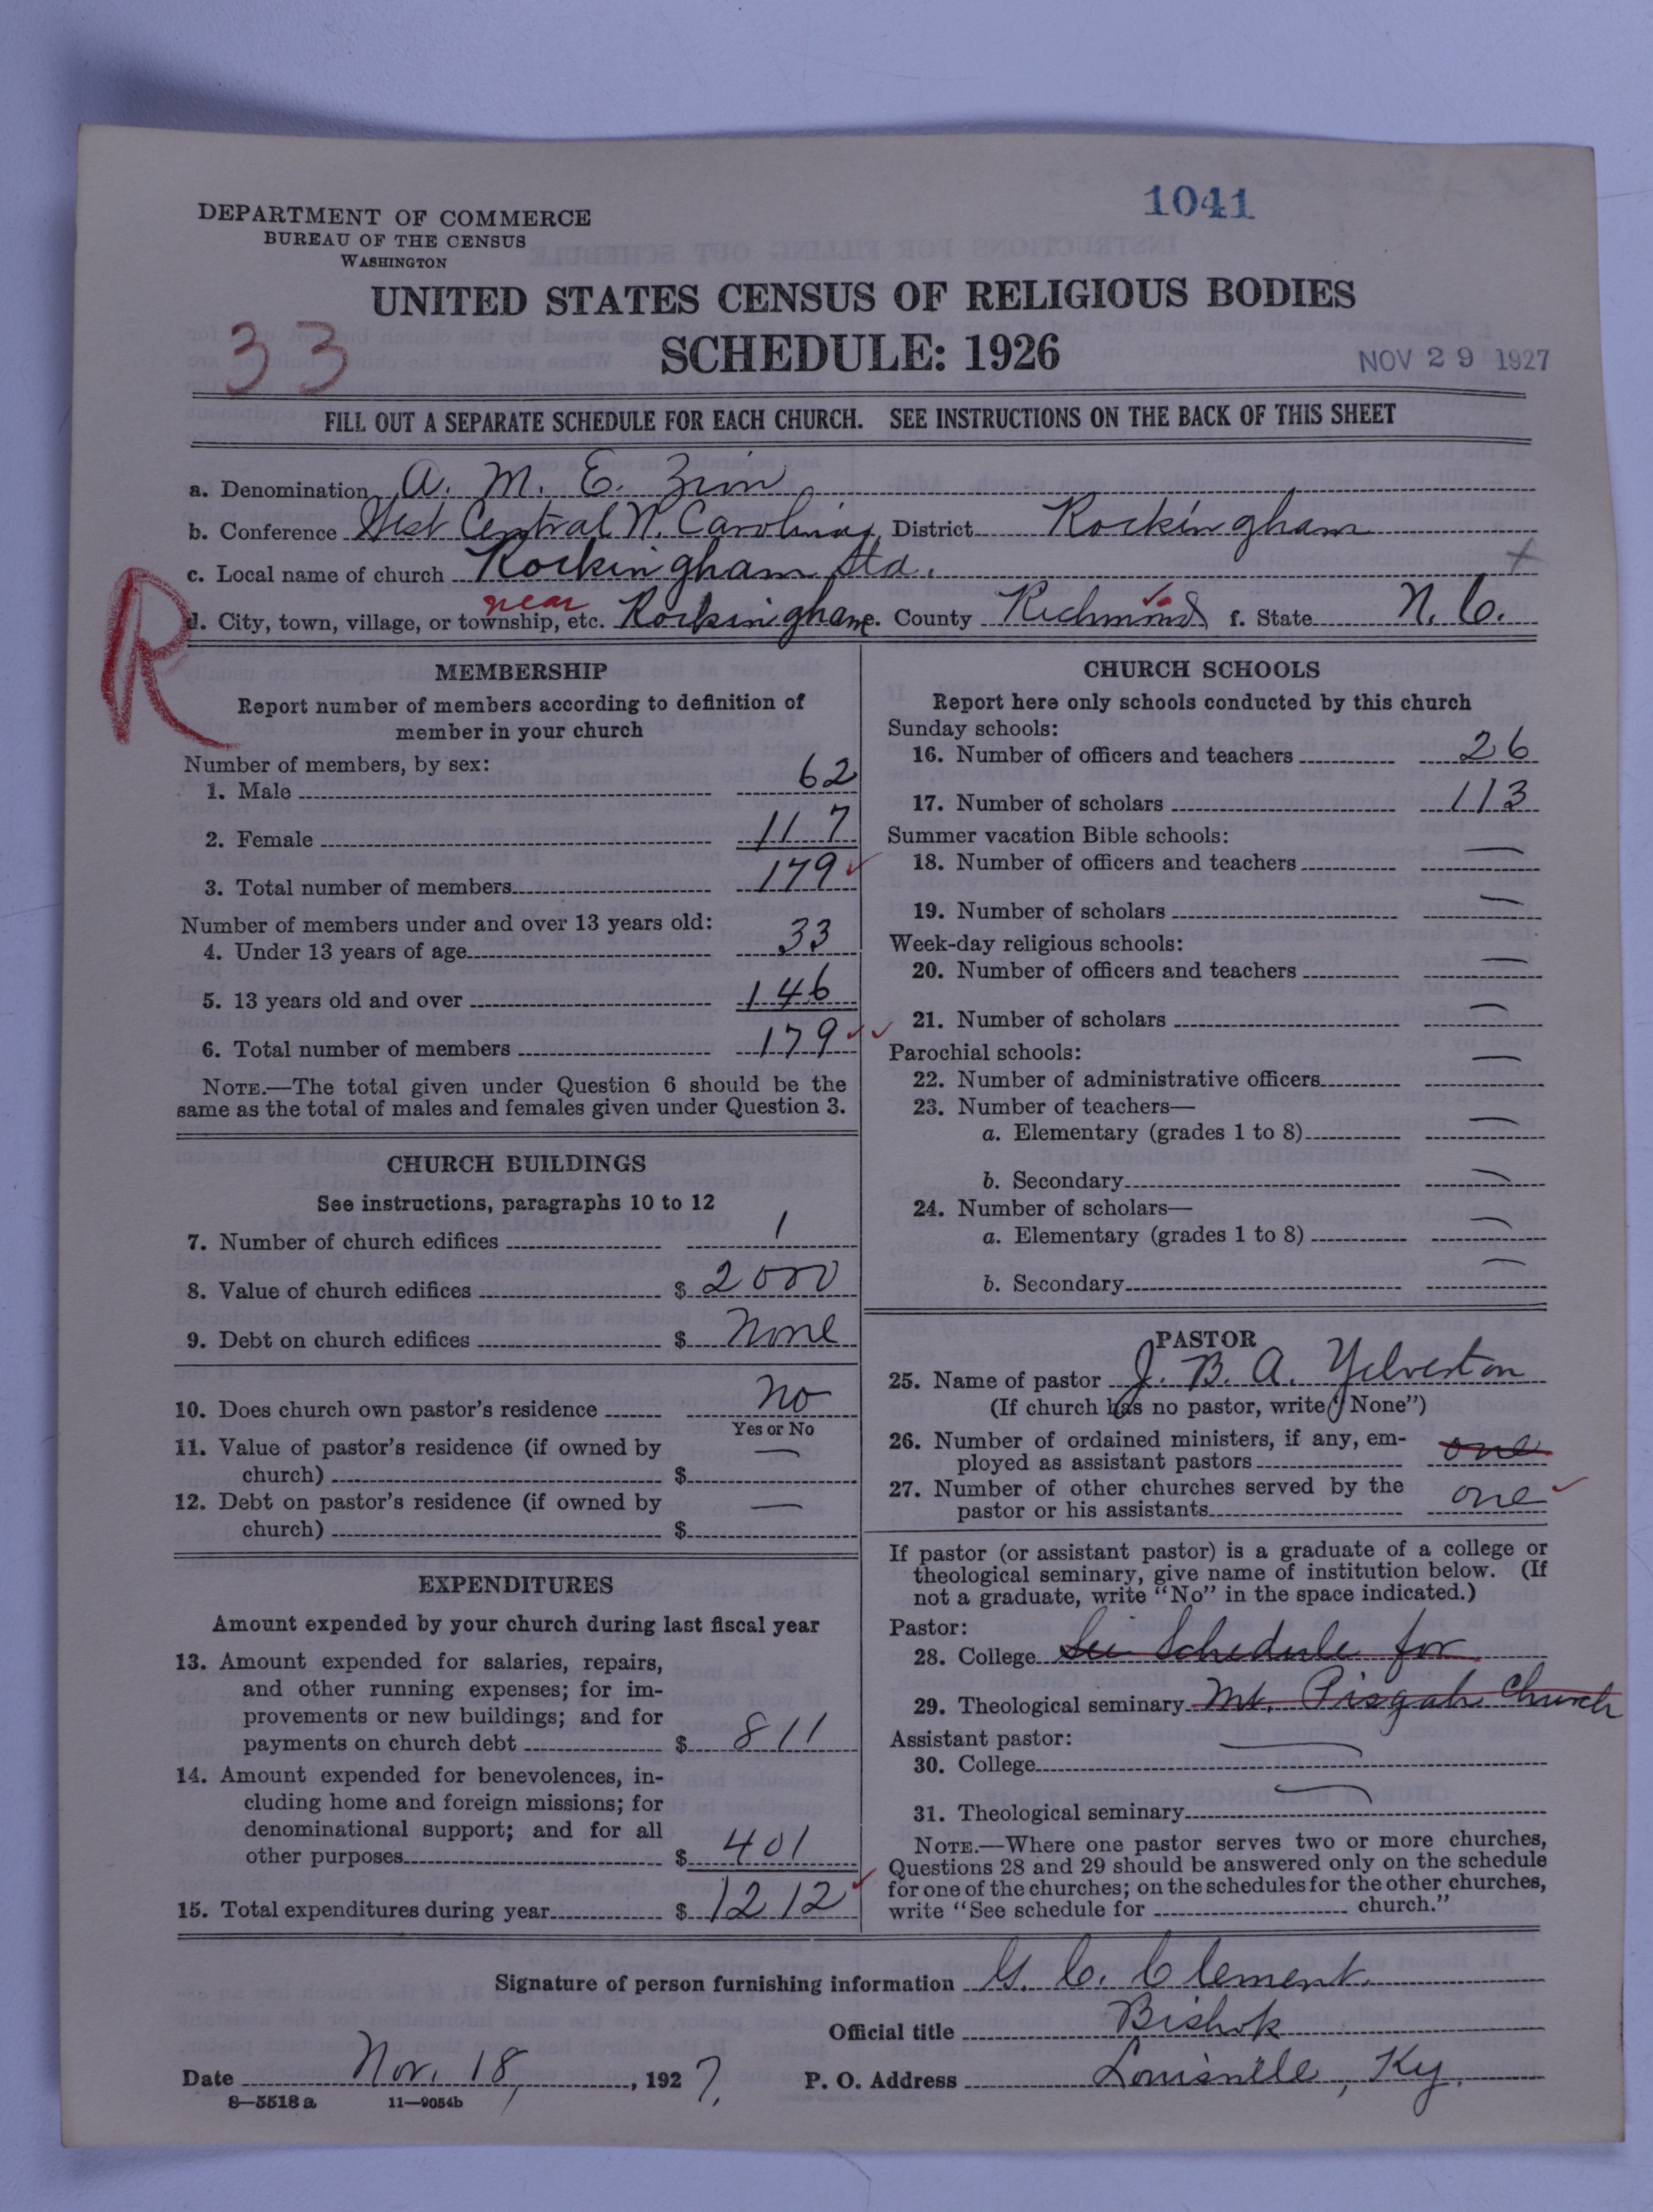 1041
DEPARTMENT OF COMMERCE
BUREAU OF THE CENSUS
WASHINGTON
UNITED STATES CENSUS OF RELIGIOUS BODIES
33
SCHEDULE: 1926
NOV 29 1927
FILL OUT A SEPARATE SCHEDULE FOR EACH CHURCH. SEE INSTRUCTIONS ON THE BACK OF THIS SHEET
a. Denomination A. M. E. Zion
b. Conference West Central N. Carolina District Rockingham
c. Local name of church Rockingham Sta.
R
near
d. City, town, village, or township, etc. Rockingham e. County Richmond f. State N. C.
MEMBERSHIP
Report number of members according to definition of
member in your church
Number of members, by sex:
1. Male 62
2. Female 117
3. Total number of members 179
Number of members under and over 13 years old:
4. Under 13 years of age 33
5. 13 years old and over 146
6. Total number of members 179
NOTE.—The total given under Question 6 should be the
same as the total of males and females given under Question 3.
CHURCH BUILDINGS
See instructions, paragraphs 10 to 12
7. Number of church edifices 1
8. Value of church edifices $ 2000
9. Debt on church edifices $ None
10. Does church own pastor's residence No
Yes or No
11. Value of pastor's residence (if owned by
church) $ —
12. Debt on pastor's residence (if owned by
church) $ —
EXPENDITURES
Amount expended by your church during last fiscal year
13. Amount expended for salaries, repairs,
and other running expenses; for im-
provements or new buildings; and for
payments on church debt $ 811
14. Amount expended for benevolences, in-
cluding home and foreign missions; for
denominational support; and for all
other purposes $ 401
15. Total expenditures during year $ 1212
CHURCH SCHOOLS
Report here only schools conducted by this church
Sunday schools:
16. Number of officers and teachers 26
17. Number of scholars 113
Summer vacation Bible schools:
18. Number of officers and teachers —
19. Number of scholars —
Week-day religious schools:
20. Number of officers and teachers —
21. Number of scholars —
Parochial schools:
22. Number of administrative officers —
23. Number of teachers—
a. Elementary (grades 1 to 8) —
b. Secondary —
24. Number of scholars—
a. Elementary (grades 1 to 8) —
b. Secondary —
PASTOR
25. Name of pastor J. B. A. Yelverton
(If church has no pastor, write "None")
26. Number of ordained ministers, if any, em-
ployed as assistant pastors one
27. Number of other churches served by the
pastor or his assistants one
If pastor (or assistant pastor) is a graduate of a college or
theological seminary, give name of institution below. (If
not a graduate, write "No" in the space indicated.)
Pastor:
28. College See Schedule for
29. Theological seminary Mt. Pisgah Church
Assistant pastor:
30. College —
31. Theological seminary —
NOTE.—Where one pastor serves two or more churches,
Questions 28 and 29 should be answered only on the schedule
for one of the churches; on the schedules for the other churches,
write "See schedule for church."
Signature of person furnishing information G. C. Clement
Official title Bishop
Date Nov. 18, 1927. P. O. Address Louisville, Ky.
8—5518 a 11—9054b